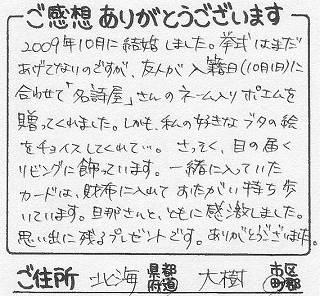 ご感想ありがとうございます
2009年10月に結婚しました。挙式はまだ
あげてないのですが、友人が入籍日(10月1日)に
合わせて「名詩屋」さんのネーム入りポエムを
贈ってくれました。しかも、私の好きなブタの絵
をチョイスしてくれて…。さっそく、目の届く
リビングに飾っています。一緒に入っていた
カードは、財布に入れておたがい持ち歩
いています。旦那さんと、ともに感激しました。
思い出に残るプレゼントです。ありがとうございました。
ご住所 北海 都道府県 大樹 市区町郡